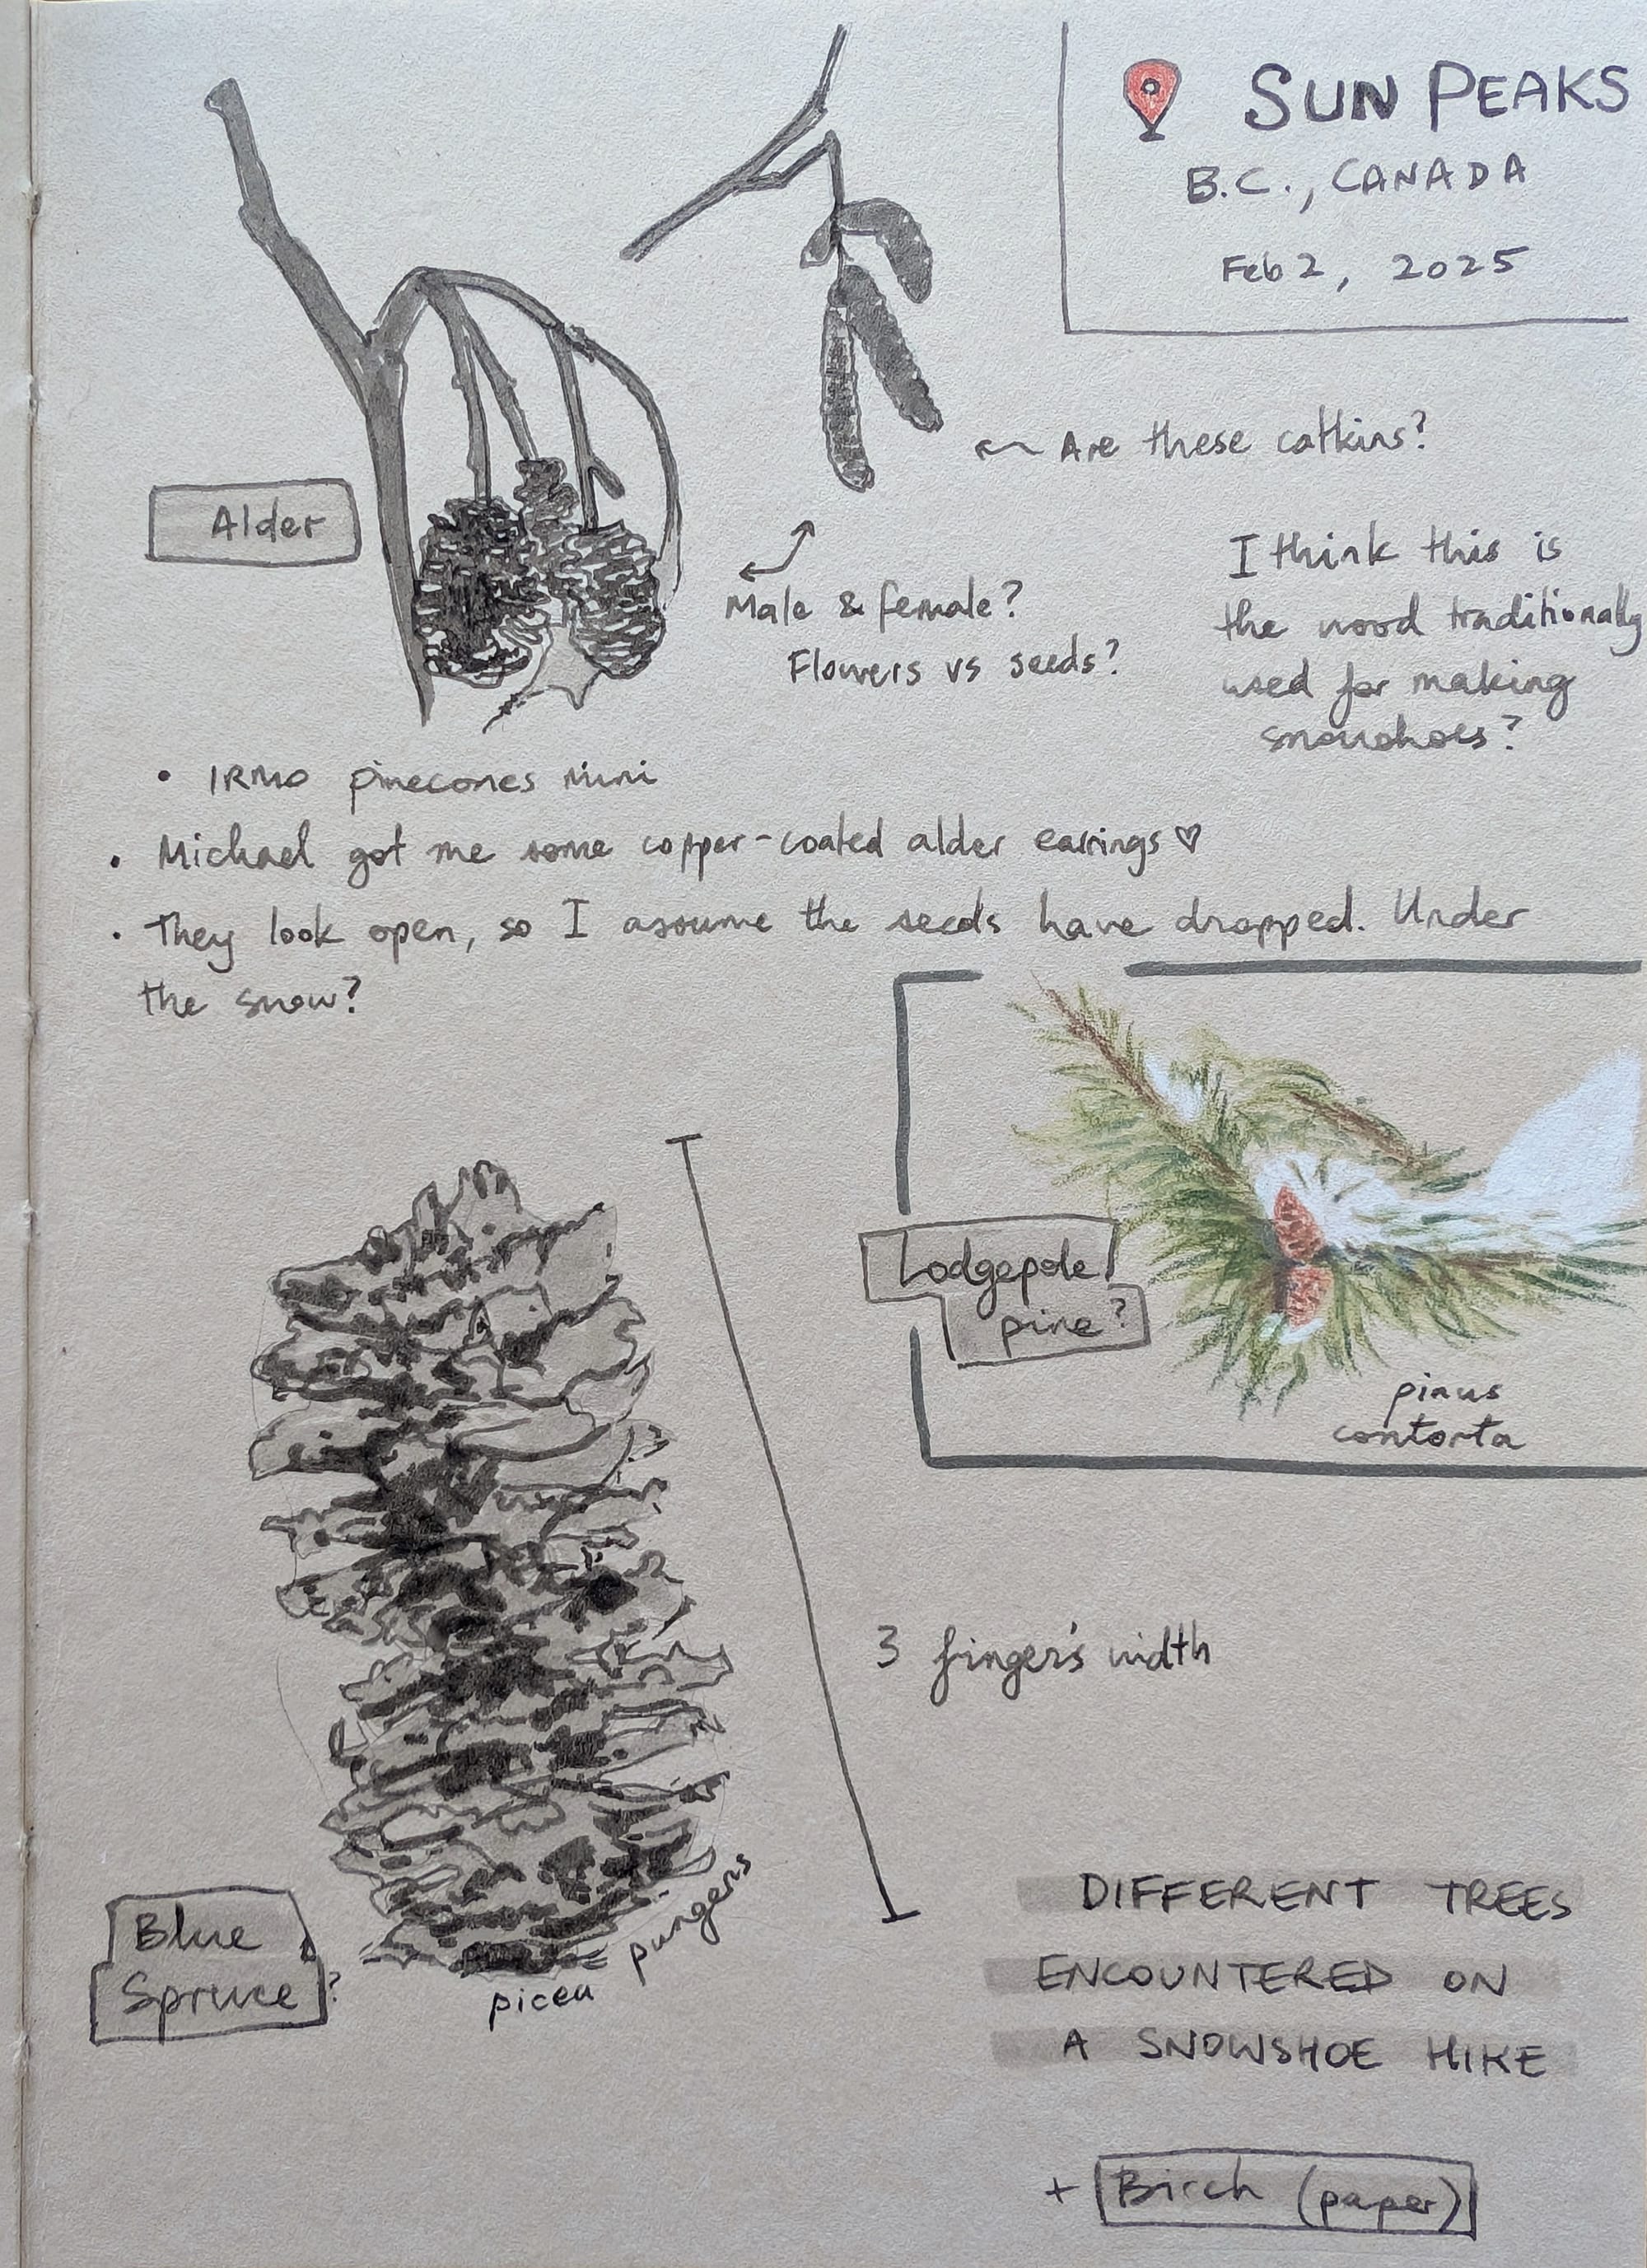 SUN PEAKS
B.C., CANADA
Feb 2, 2025
Are these catkins?
Alder
Male & female?
Flowers vs seeds?
I think this is
the wood traditionally
used for making
snowshoes?
• pinecones mini
• Michael got me some copper-coated alder earrings ♡
• They look open, so I assume the seeds have dropped. Under
the snow?
Lodgepole
pine?
pinus
contorta
3 finger's width
Blue
Spruce?
picea pungens
DIFFERENT TREES
ENCOUNTERED ON
A SNOWSHOE HIKE
+ Birch (paper)